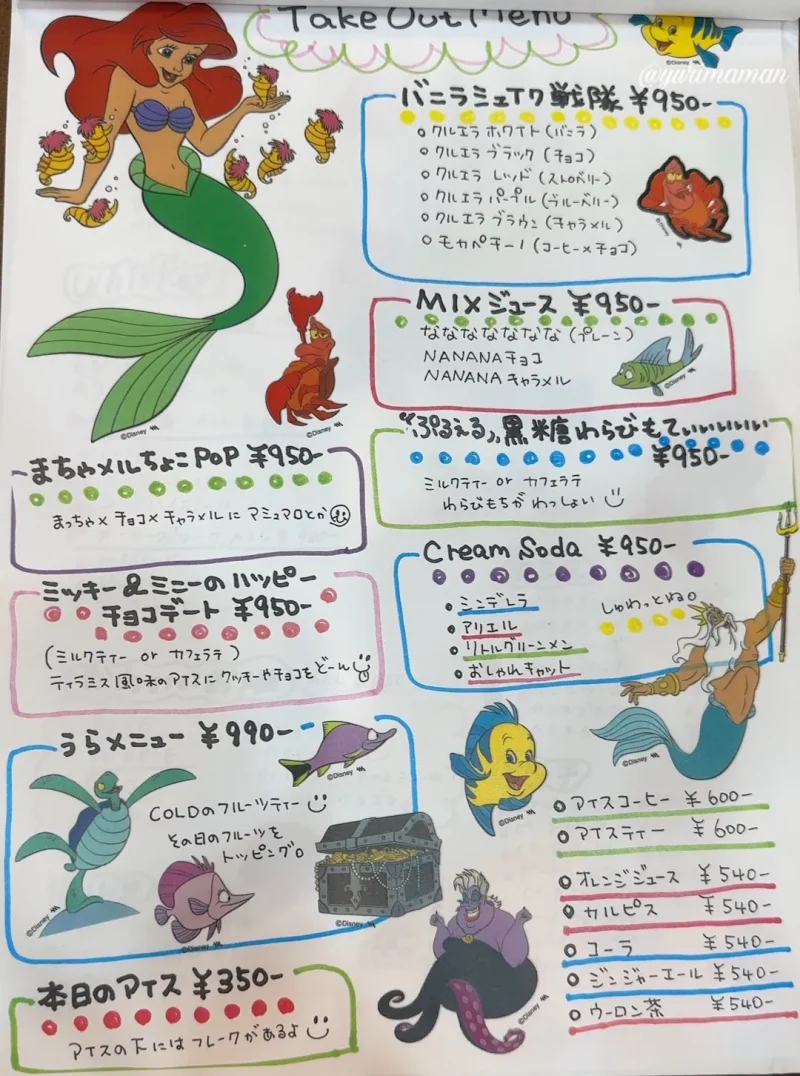 Take Out Menu
@yurimaman
バニラシェイク戦隊 ¥950-
クルエラ ホワイト(バニラ)
クルエラ ブラック(チョコ)
クルエラ レッド(ストロベリー)
クルエラ パープル(ブルーベリー)
クルエラ ブラウン(キャラメル)
モカペチーノ(コーヒー×チョコ)
MIXジュース ¥950-
ななななななな(プレーン)
NANANAチョコ
NANANAキャラメル
"ぷるえる"黒糖わらびもてぃいいいいい
¥950-
ミルクティー or カフェラテ
わらびもちが わっしょい
まちゃメルちょこPOP ¥950-
まっちゃ×チョコ×キャラメルにマシュマロとか
Cream Soda ¥950-
シンデレラ
アリエル
リトルグリーンメン
おしゃれキャット
しゅわっとね。
ミッキー&ミニーのハッピー
チョコデート ¥950-
(ミルクティー or カフェラテ)
ティラミス風味のアイスにクッキーやチョコをどーん
うらメニュー ¥990-
COLDのフルーツティー
その日のフルーツを
トッピング。
アイスコーヒー ¥600-
アイスティー ¥600-
オレンジジュース ¥540-
カルピス ¥540-
コーラ ¥540-
ジンジャーエール ¥540-
ウーロン茶 ¥540-
本日のアイス ¥350-
アイスの下にはフレークがあるよ
©Disney
©Disney
©Disney
©Disney
©Disney
©Disney
©Disney
©Disney
©Disney
©Disney
©Disney
©Disney